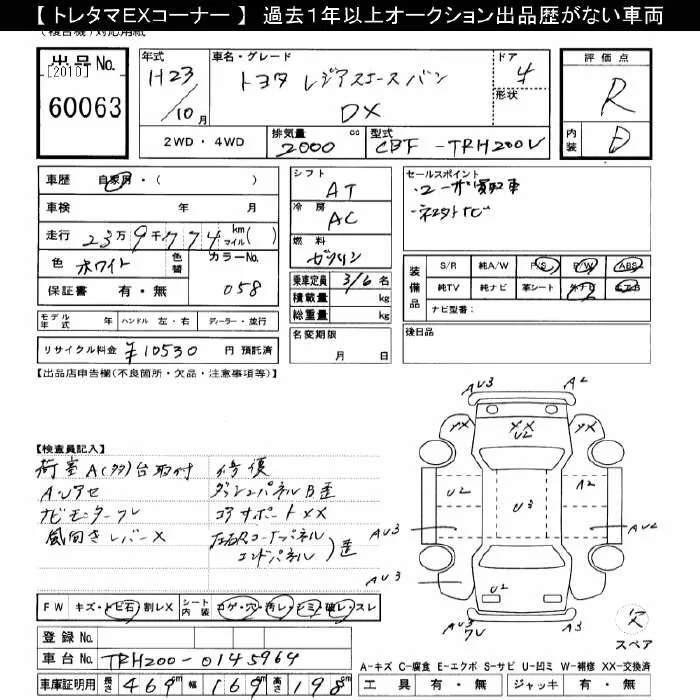 【 トレタマEXコーナー 】 過去１年以上オークション出品歴がない車両
出品No.
[2010]
60063
年式
H23/10月
車名・グレード
トヨタ レジアスエースバン
DX
ドア
4
形状
評価点
R
内装
D
2WD・4WD
排気量
2000 cc
型式
CBF -TRH200V
車歴 自家用・( )
車検 年 月
走行 23万9千774 km マイル ( )
色 ホワイト
色替
カラーNo. 058
保証書 有・無
モデル年式 年
ハンドル 左・右
ディーラー・並行
リサイクル料金 ￥10530 円 預託済
シフト AT
冷房 AC
燃料 ガソリン
乗車定員 3/6 名
積載量 kg
総重量 kg
名変期限
月 日
セールスポイント
・ユーザー買取車
装備品
S/R 純A/W P/S P/W ABS
純TV 純ナビ 革シート 外ナビ
ナビ型番:
後日品
【出品店申告欄(不良箇所・欠品・注意事項等)】
【検査員記入】
荷室A(多)台取付
A・Uアセ
ナビモニターフレ
風向きレバーX
修復
ダッシュパネルB歪
コアサポートXX
左右Rコーナーパネル
エンドパネル ) 歪
FW キズ・トビ石 割レX
シート内装 コゲ・穴・汚レ・シミ・破レ・スレ
登録No.
車台No. TRH200-0145964
車庫証明用 長さ 469 cm 幅 169 cm 高さ 198 cm
AU3
A2
YX
XX
U2
YX
U2
U3
A2
AU3
AU2
AU3
U2
AU3
A3
欠
スペア
A-キズ C-腐食 E-エクボ S-サビ U-凹ミ W-補修 XX-交換済
工具 有・無 ジャッキ 有・無